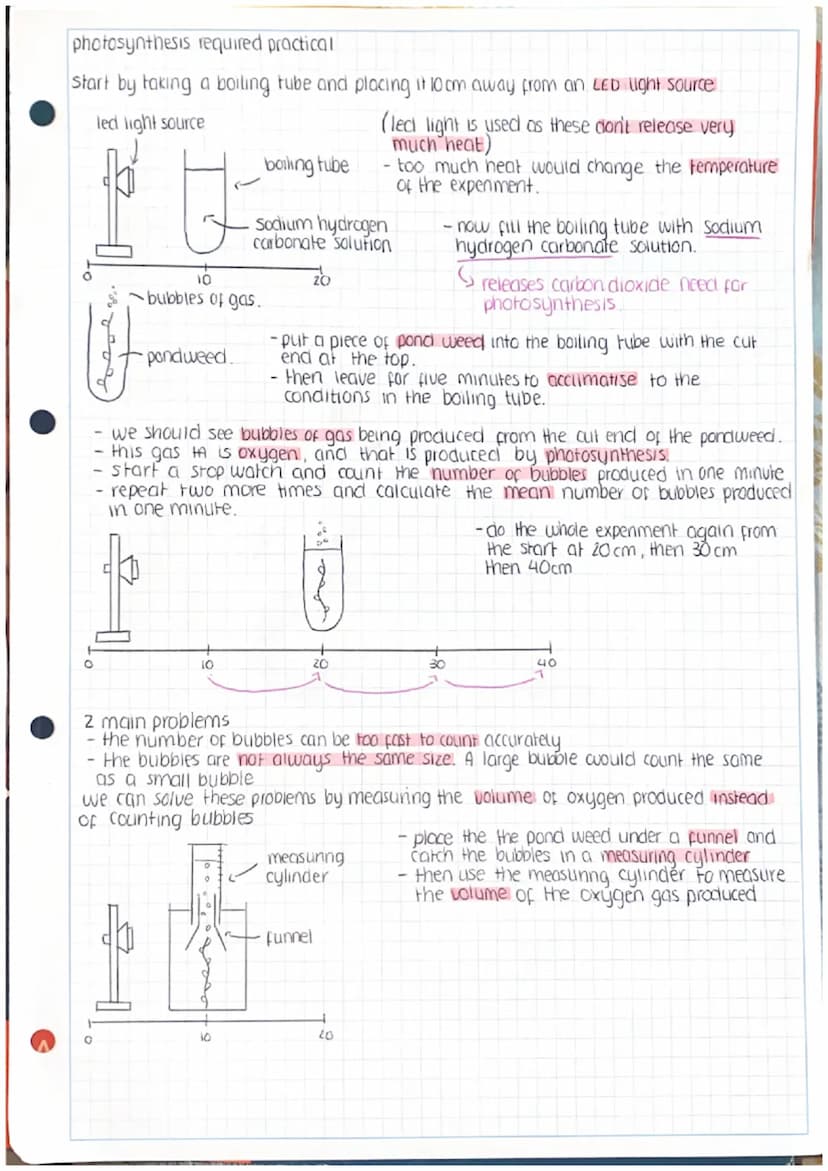 photosynthesis required practical
start by taking a boiling tube and placing it 10cm away from an LED light source
led light source
(led light is used as these don't release very
much heat)
boiling tube
- too much heat would change the temperature
of the experiment.
sodium hydrogen
carbonate solution
- now fill the boiling tube with sodium
hydrogen carbonate solution.
0 10 20
releases carbon dioxide need for
photosynthesis
bubbles of gas.
pondweed.
- put a piece of pond weed into the boiling tube with the cut
end at the top.
- then leave for five minutes to acclimatise to the
conditions in the boiling tube.
- we should see bubbles of gas being produced from the cut end of the pondweed.
- this gas is oxygen, and that is produced by photosynthesis.
- start a stop watch and count the number of bubbles produced in one minute
- repeat two more times and calculate the mean number of bubbles produced
in one minute.
- do the whole experiment again from
the start at 20cm, then 30cm
then 40cm
0 10 20 30 40
2 main problems
- the number of bubbles can be too fast to count accurately
- the bubbles are not always the same size. A large bubble would count the same
as a small bubble
we can solve these problems by measuring the volume of oxygen produced instead
of counting bubbles
measuring
cylinder
- place the the pond weed under a funnel and
catch the bubbles in a measuring cylinder
- then use the measuring cylinder to measure
the volume of the oxygen gas produced
funnel
0 10 20